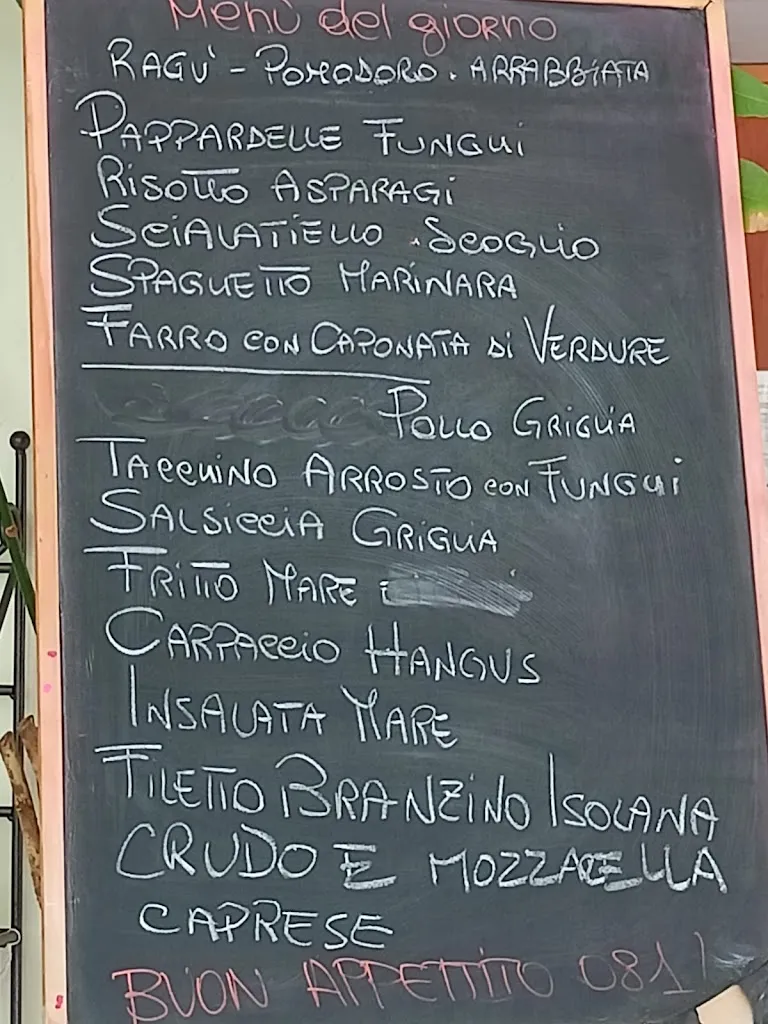 Menù del giorno
RAGU' - POMODORO . ARRABBIATA
PAPPARDELLE FUNGHI
RISOTTO ASPARAGI
SCIALATIELLO . SCOGLIO
SPAGHETTO MARINARA
FARRO CON CAPONATA Di VERDURE
POLLO GRIGLIA
TACCHINO ARROSTO CON FUNGHi
SALSICCIA GRIGLIA
FRITTO MARE
CARPACCIO HANGUS
INSALATA MARE
FILETTO BRANZINO ISOLANA
CRUDO E MOZZARELLA
CAPRESE
BUON APPETTITO 081!